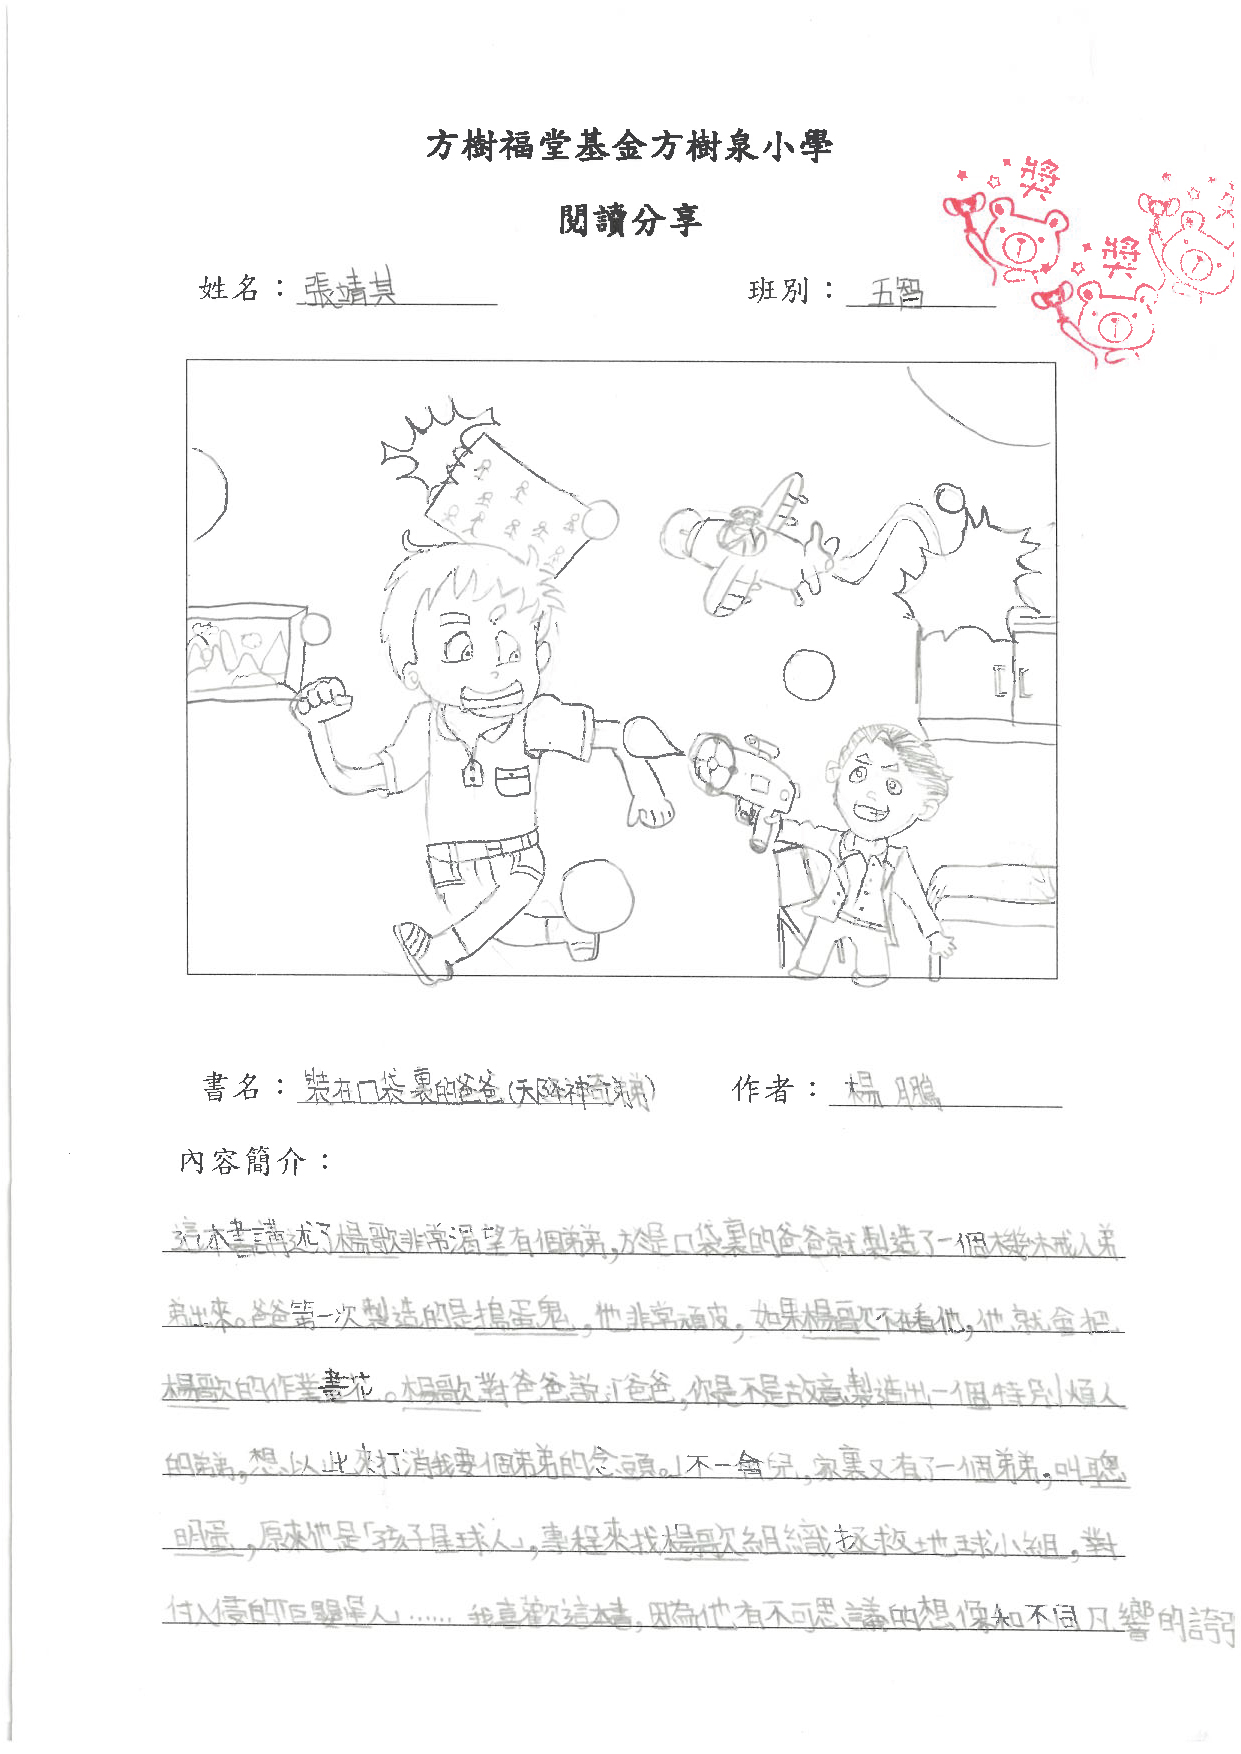 方樹福堂基金方樹泉小學
閱讀分享
獎
獎
姓名：張靖其
班別：五智
書名：裝在口袋裏的爸爸(天降神奇弟弟)
作者：楊鵬
內容簡介：
這本書講述了楊歌非常渴望有個弟弟,於是口袋裏的爸爸就製造了一個機械人弟
弟出來。爸爸第一次製造的是搗蛋鬼,他非常頑皮,如果楊歌不在看他,他就會把
楊歌的作業畫花。楊歌對爸爸說:「爸爸,你是不是故意製造出一個特別煩人
的弟弟,想以此來打消我要個弟弟的念頭。」不一會兒,家裏又有了一個弟弟,叫聰
明蛋,原來他是「孩子星球人」,專程來找楊歌組織拯救地球小組,對
付入侵的「巨顎星人」……我喜歡這本書,因為他有不可思議的想像和不同凡響的誇